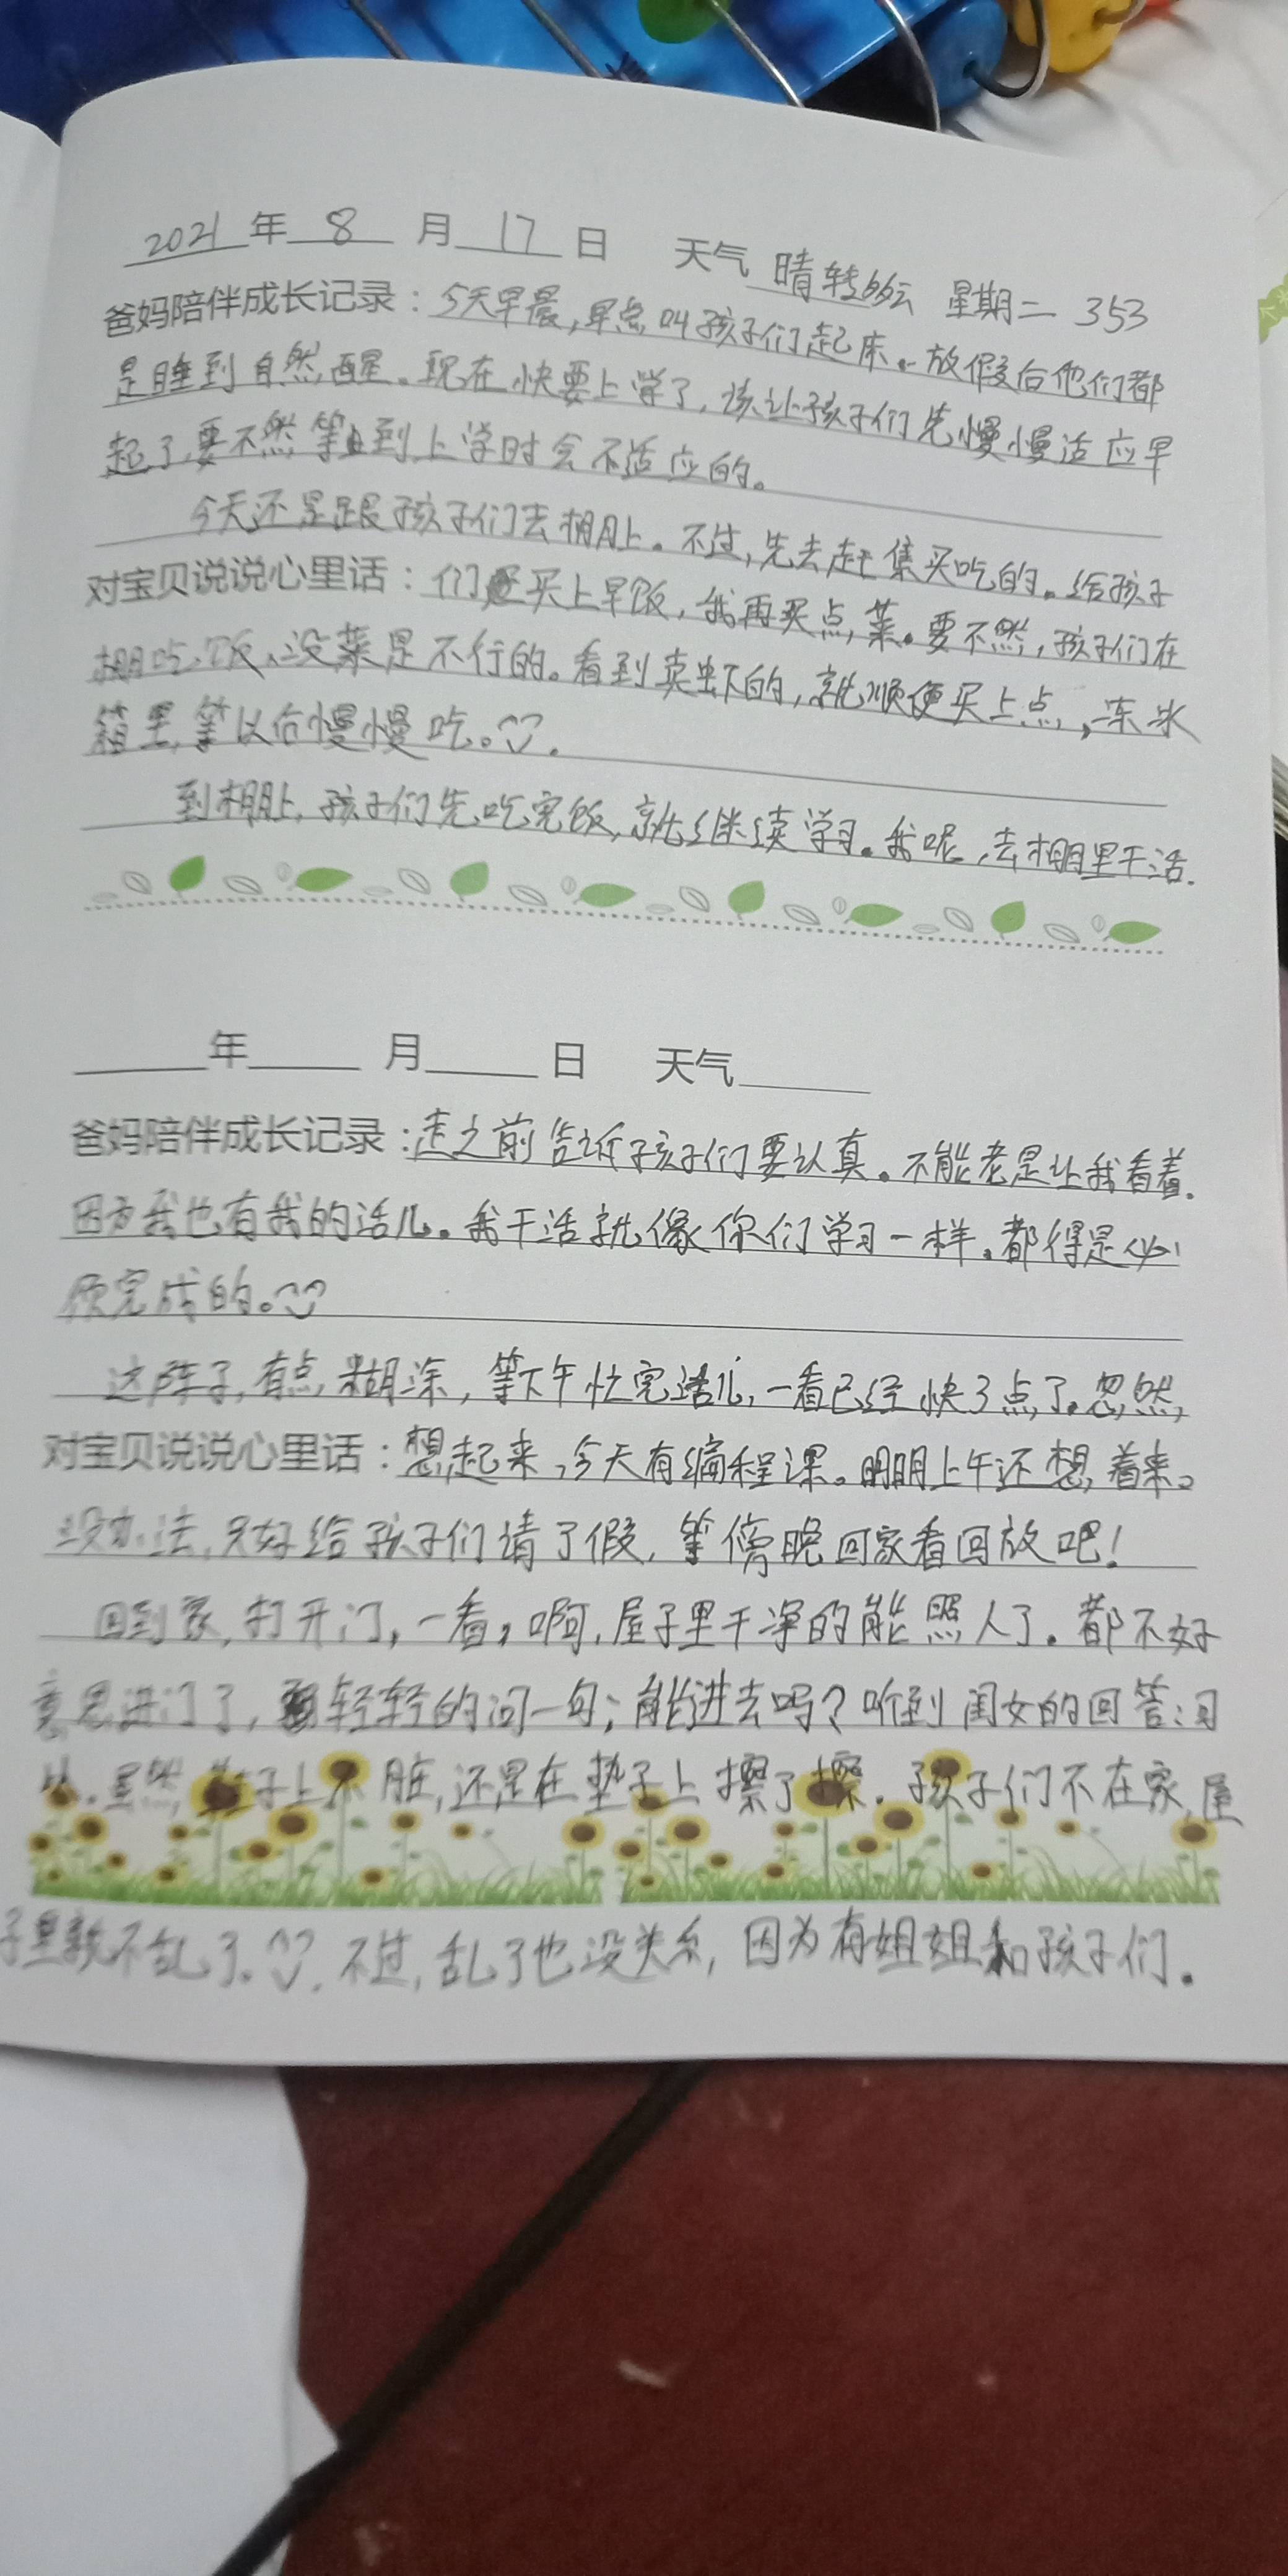 2021年8月17日 天气晴转多云 星期二 353
爸妈陪伴成长记录：今天早晨,早点叫孩子们起床。放假后他们都
是睡到自然醒。现在快要上学了,该让孩子们先慢慢适应早
起了,要不然等到上学时会不适应的。
今天还是跟孩子们去棚上。不过,先去赶集买吃的。给孩子
对宝贝说说心里话：们买上早饭,我再买点菜。要不然,孩子们在
棚吃饭,没菜是不行的。看到卖虾的,就顺便买上点,冻冰
箱里,等以后慢慢吃。
到棚上,孩子们先吃完饭,就继续学习。我呢,去棚里干活.
年 月 日 天气
爸妈陪伴成长记录：走之前告诉孩子们要认真。不能老是让我看着.
因为我也有我的活儿。我干活就像你们学习一样。都得是必
须完成的。
这阵子,有点糊涂,等下午忙完活儿,一看已经快3点了。忽然,
对宝贝说说心里话：想起来,今天有编程课。明明上午还想着来。
没办法,只好给孩子们请了假,等傍晚回家看回放吧!
回到家,打开门,一看,啊,屋子里干净的能照人了。都不好
意思进门了,轻轻的问一句;能进去吗?听到闺女的回答:可
以.虽然,鞋子上不脏,还是在垫子上擦了擦.孩子们不在家,屋
子里就不乱了.不过,乱了也没关系,因为有姐姐和孩子们.